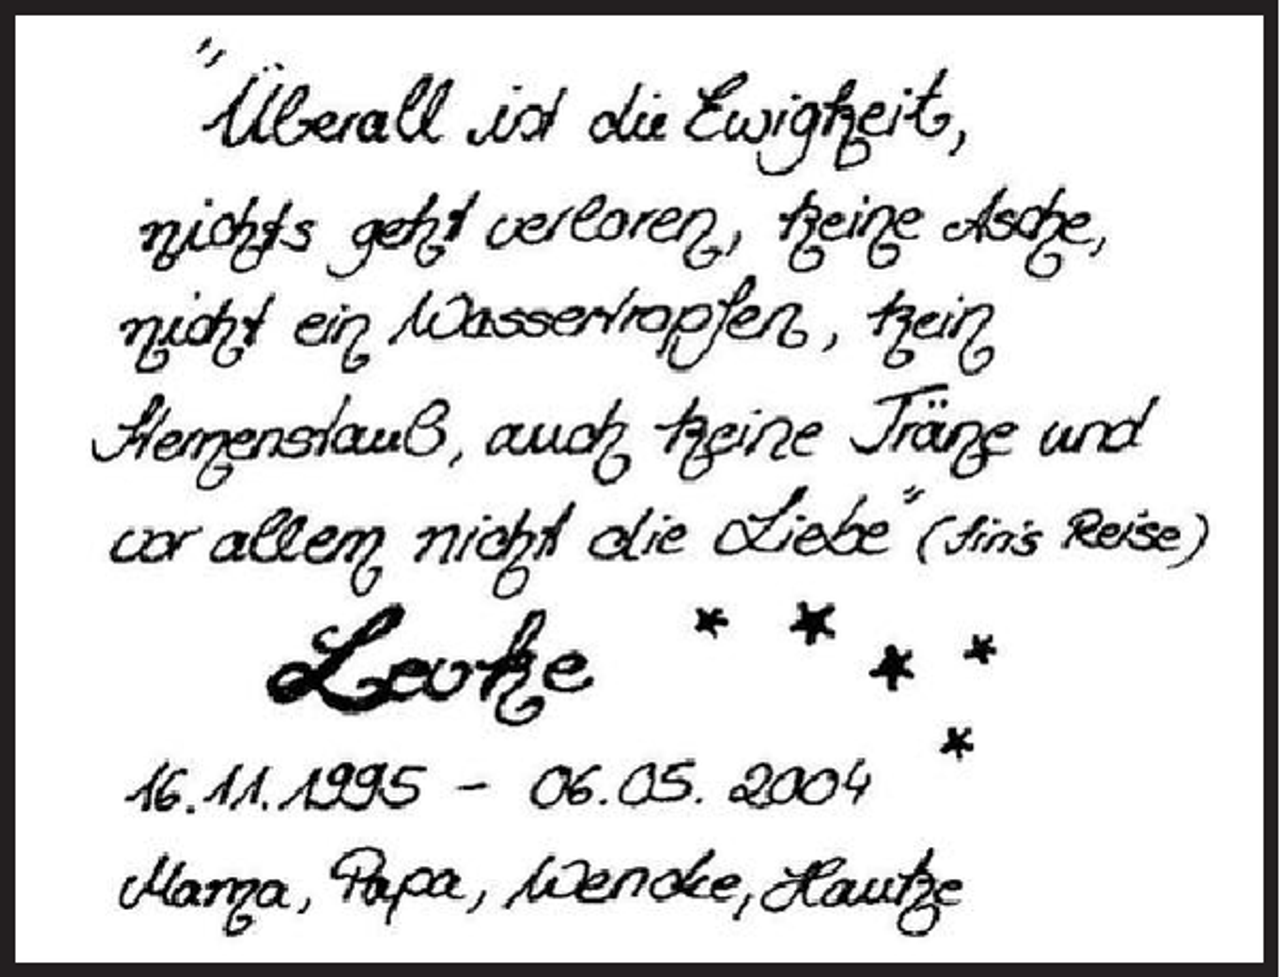 "Überall ist die Ewigkeit,
nichts geht verloren, keine Asche,
nicht ein Wassertropfen, kein
Sternenstauß, auch keine Träne und
vor allem nicht die Liebe" (Jin's Reise)
Levke
16.11.1995 - 06.05.2004
Mama, Papa, Wencke, Hauke